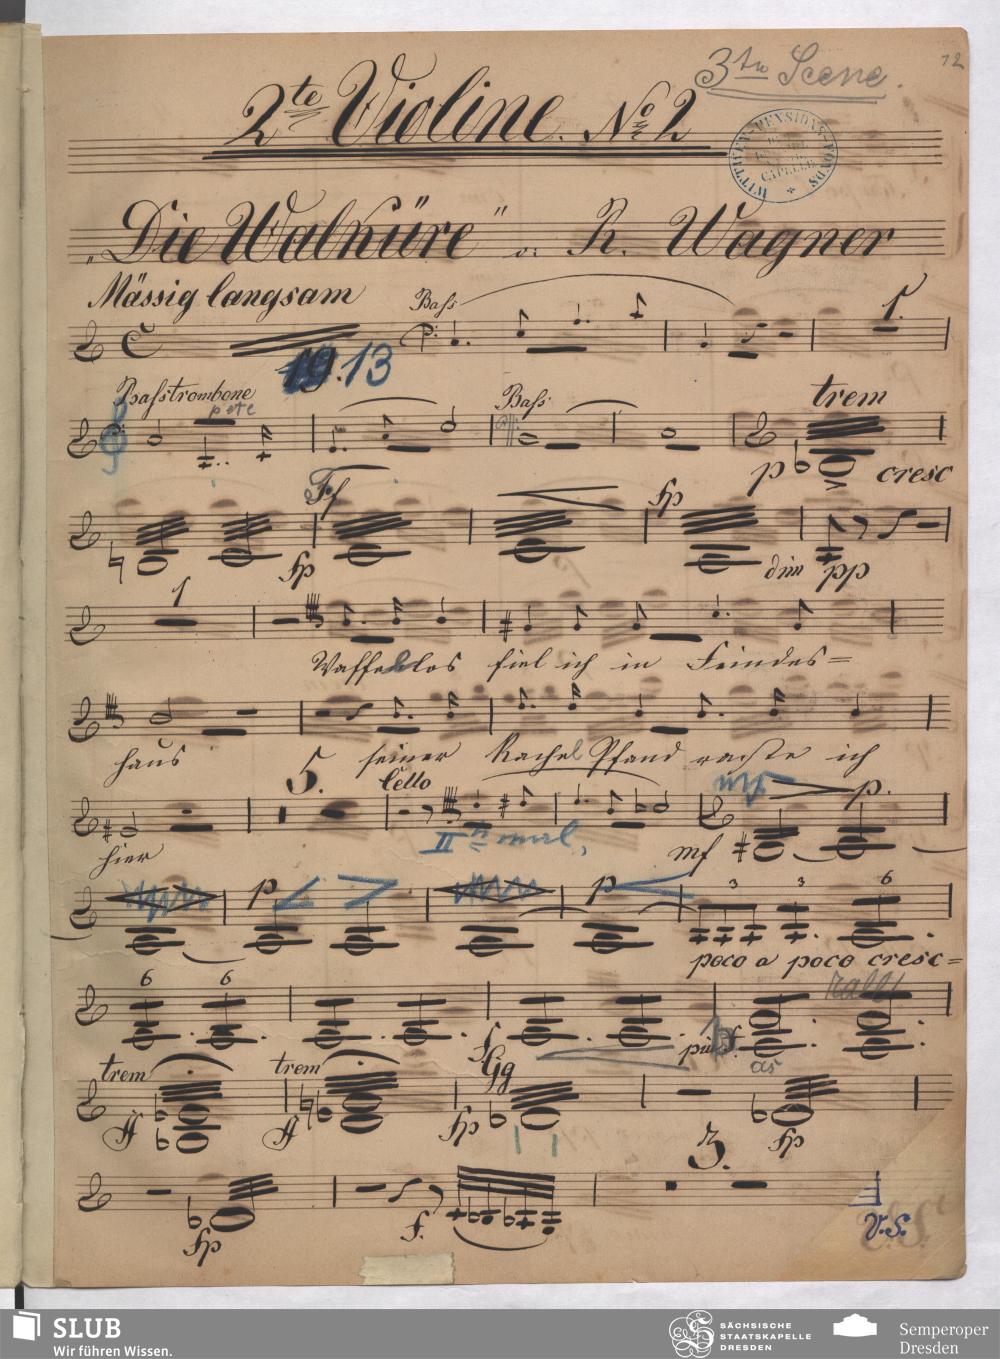 3te Scene.
12
2te Violine. No 2
WITTWEN-PENSIONS-FONDS
CAPELLE
„Die Walküre" v. R. Wagner
Mässig langsam
Bass
1.
13
Basstrombone
Bass
trem
p
cresc
Ff
fp
fp
dim pp
1
Waffenlos fiel ich in Feindes=
haus
seiner Rache Pfand raste ich
5.
Cello
mf
p.
hier
II
mf
p
p
3 3 6
poco a poco cresc=
6 6
rall
f
più f.
as
trem
trem
Gg
ff
ff
fp
fp
3.
fp
f.
V.S.
SLUB
Wir führen Wissen.
SÄCHSISCHE
STAATSKAPELLE
DRESDEN
Semperoper
Dresden